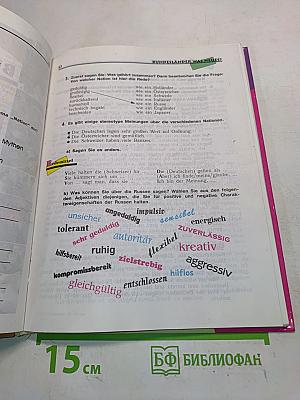 BUNDESLÄNDER HAUTNAH!!!
3. Zuerst sagen Sie: Was gehört zusammen? Dann beantworten Sie die Frage:
Von welcher Nation ist hier die Rede?
geduldig
ungeduldig
flexibel
zurückhaltend
humorvoll
technisch begabt
bescheiden
wie ein Holländer
wie ein Österreicher
wie ein Schwede
wie ein Italiener
wie ein Russe
wie ein Engländer
wie ein Japaner
4. Es gibt einige stereotype Meinungen über die verschiedenen Nationen.
Die Deutschen legen sehr großen Wert auf Ordnung.
Die Österreicher sind gemütlich.
Die Schweizer haben viele Banken.
a) Sagen Sie es anders.
Redemittel
Viele halten die (Schweizer) für
Sie kümmern sich um
Von sagt man, dass sie
Die (Deutschen) gelten als
(Aber) ich finde/meine/glaube,
Ich bin der Meinung,
b) Was können Sie über die Russen sagen? Wählen Sie aus den folgen-
den Adjektiven diejenigen, die Sie für positive und negative Charak-
tereigenschaften der Russen halten.
unsicher
ungeduldig
impulsiv
sensibel
energisch
tolerant
sehr geduldig
autoritär
ZUVERLÄSSIG
hilfsbereit
ruhig
flexibel
kreativ
kompromissbereit
zielstrebig
hilflos
aggressiv
gleichgültig
entschlossen
Mythen
15 см
БФ БИБЛИОФАН